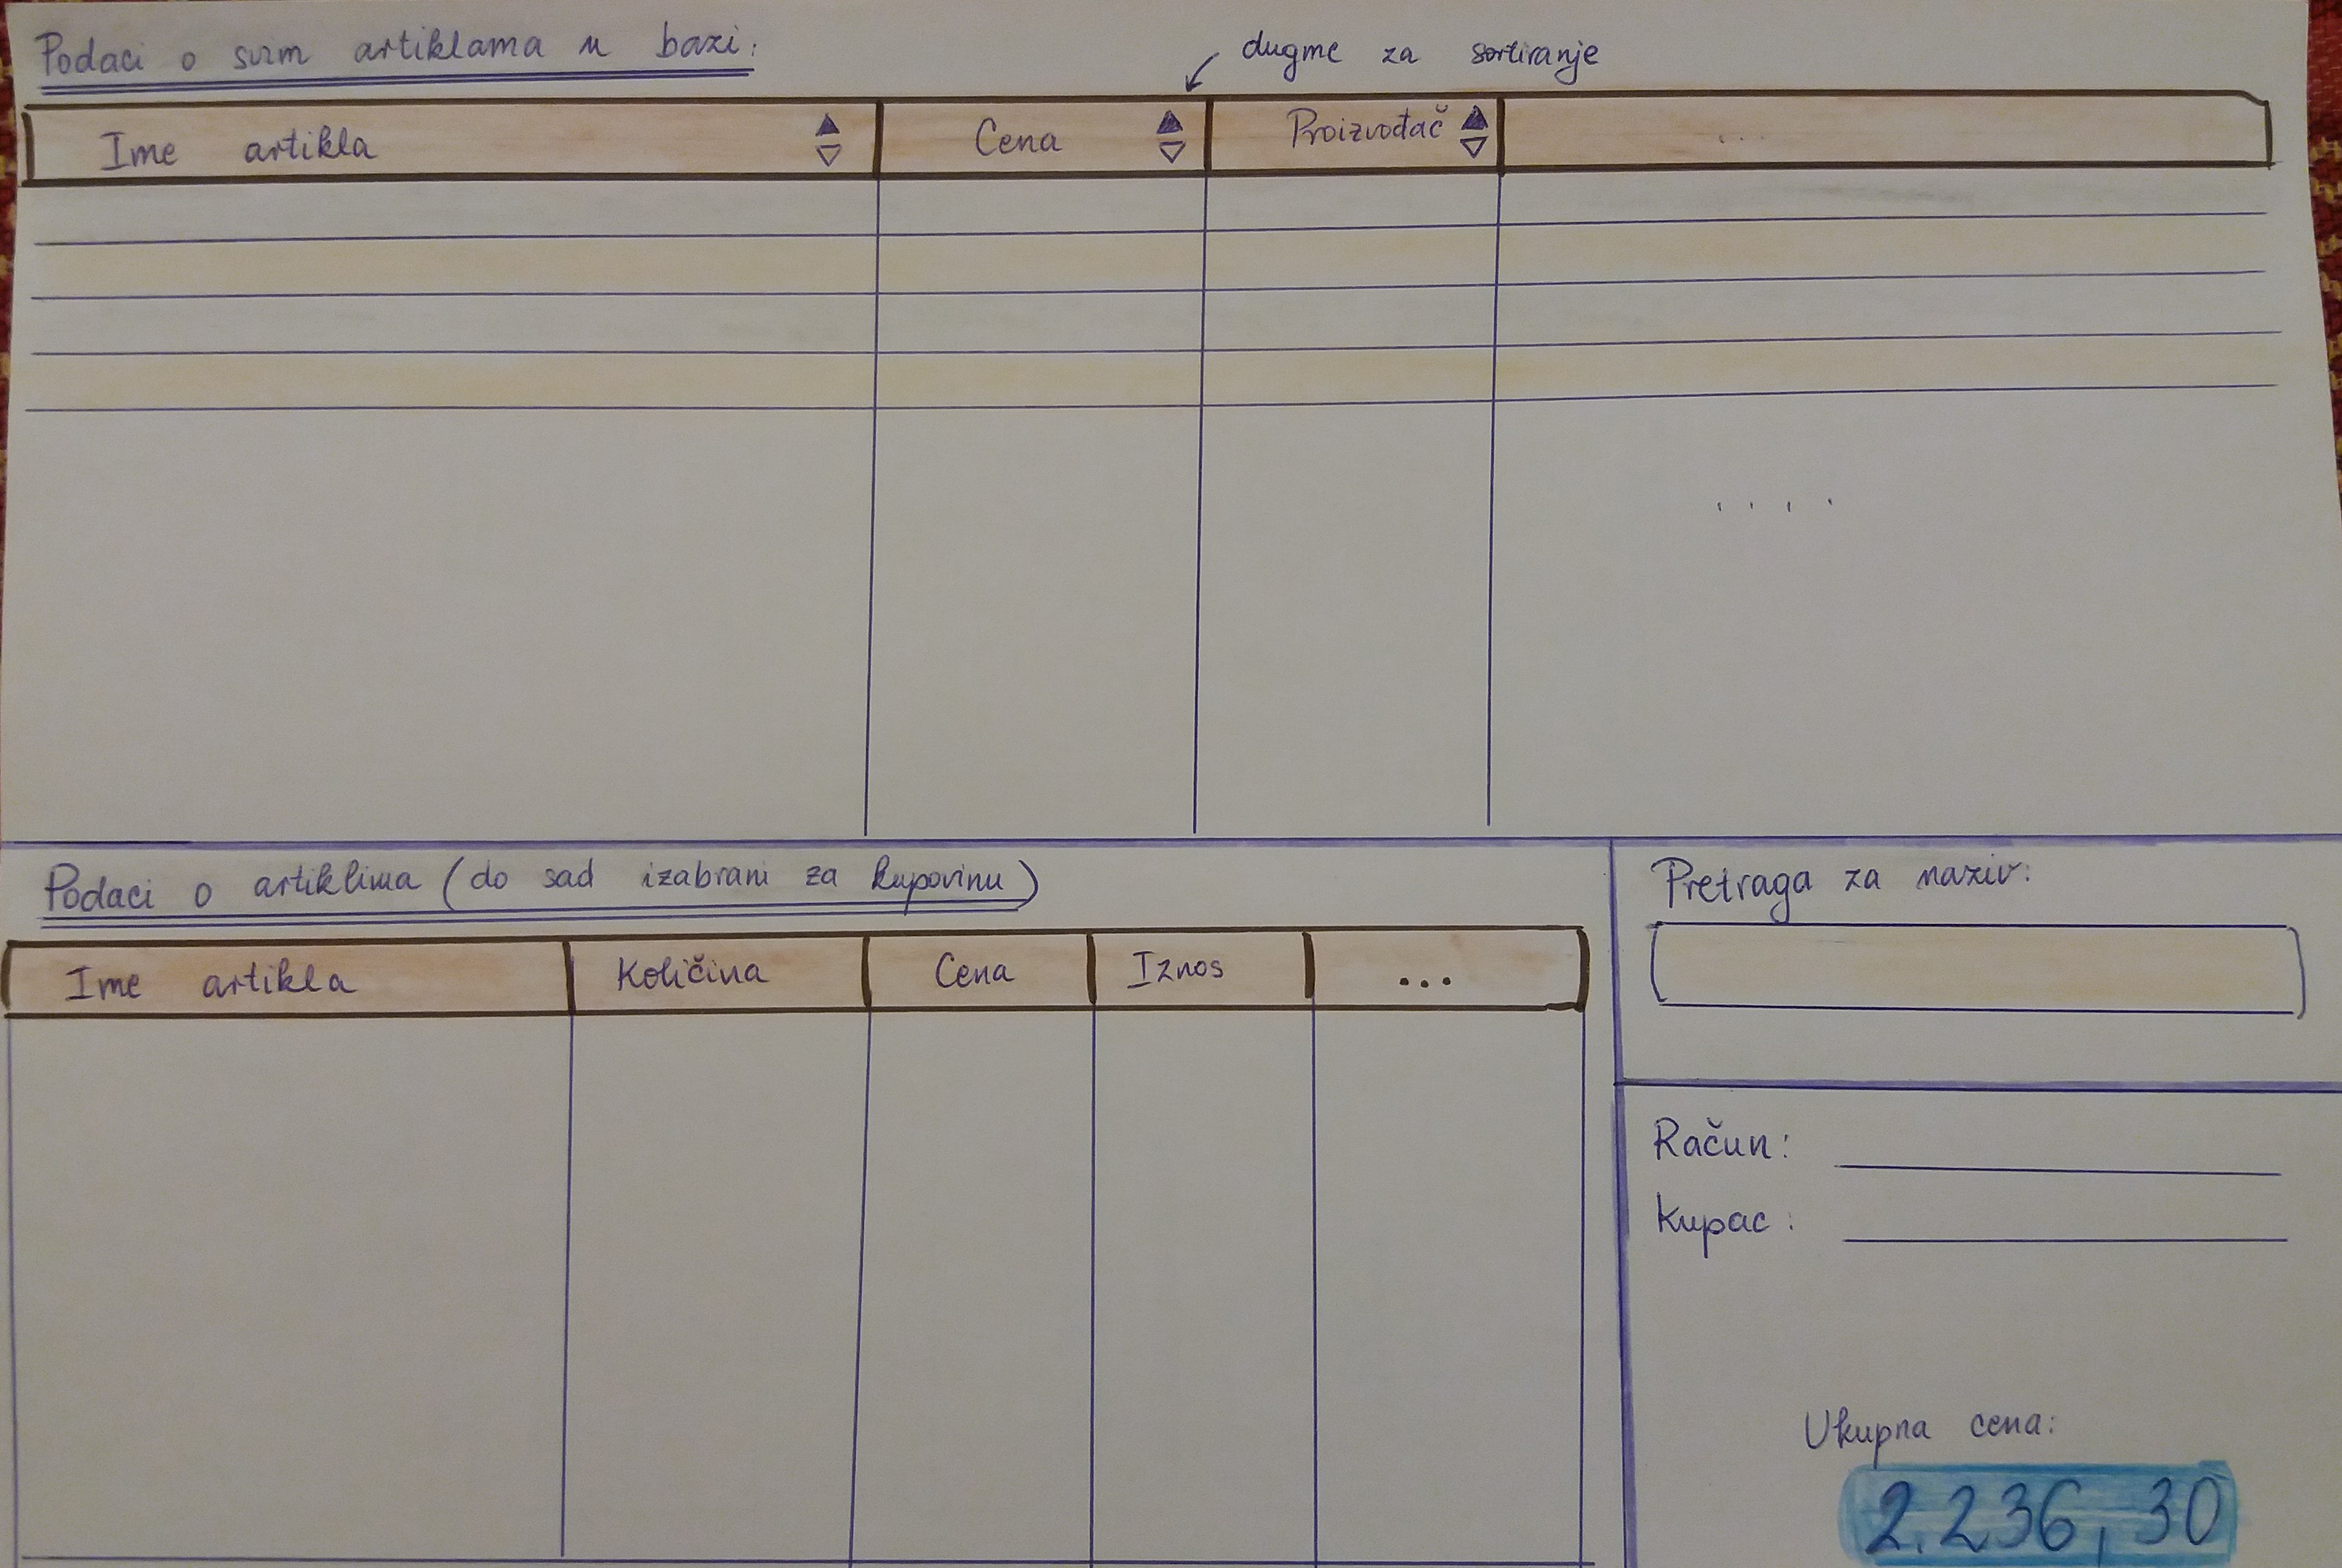 Podaci o svim artiklama u bazi:
dugme za sortiranje
Ime artikla Cena Proizvođač ...
....
Podaci o artiklima (do sad izabrani za kupovinu)
Ime artikla Količina Cena Iznos ...
Pretraga za naziv:
Račun:
Kupac:
Ukupna cena:
2.236,30